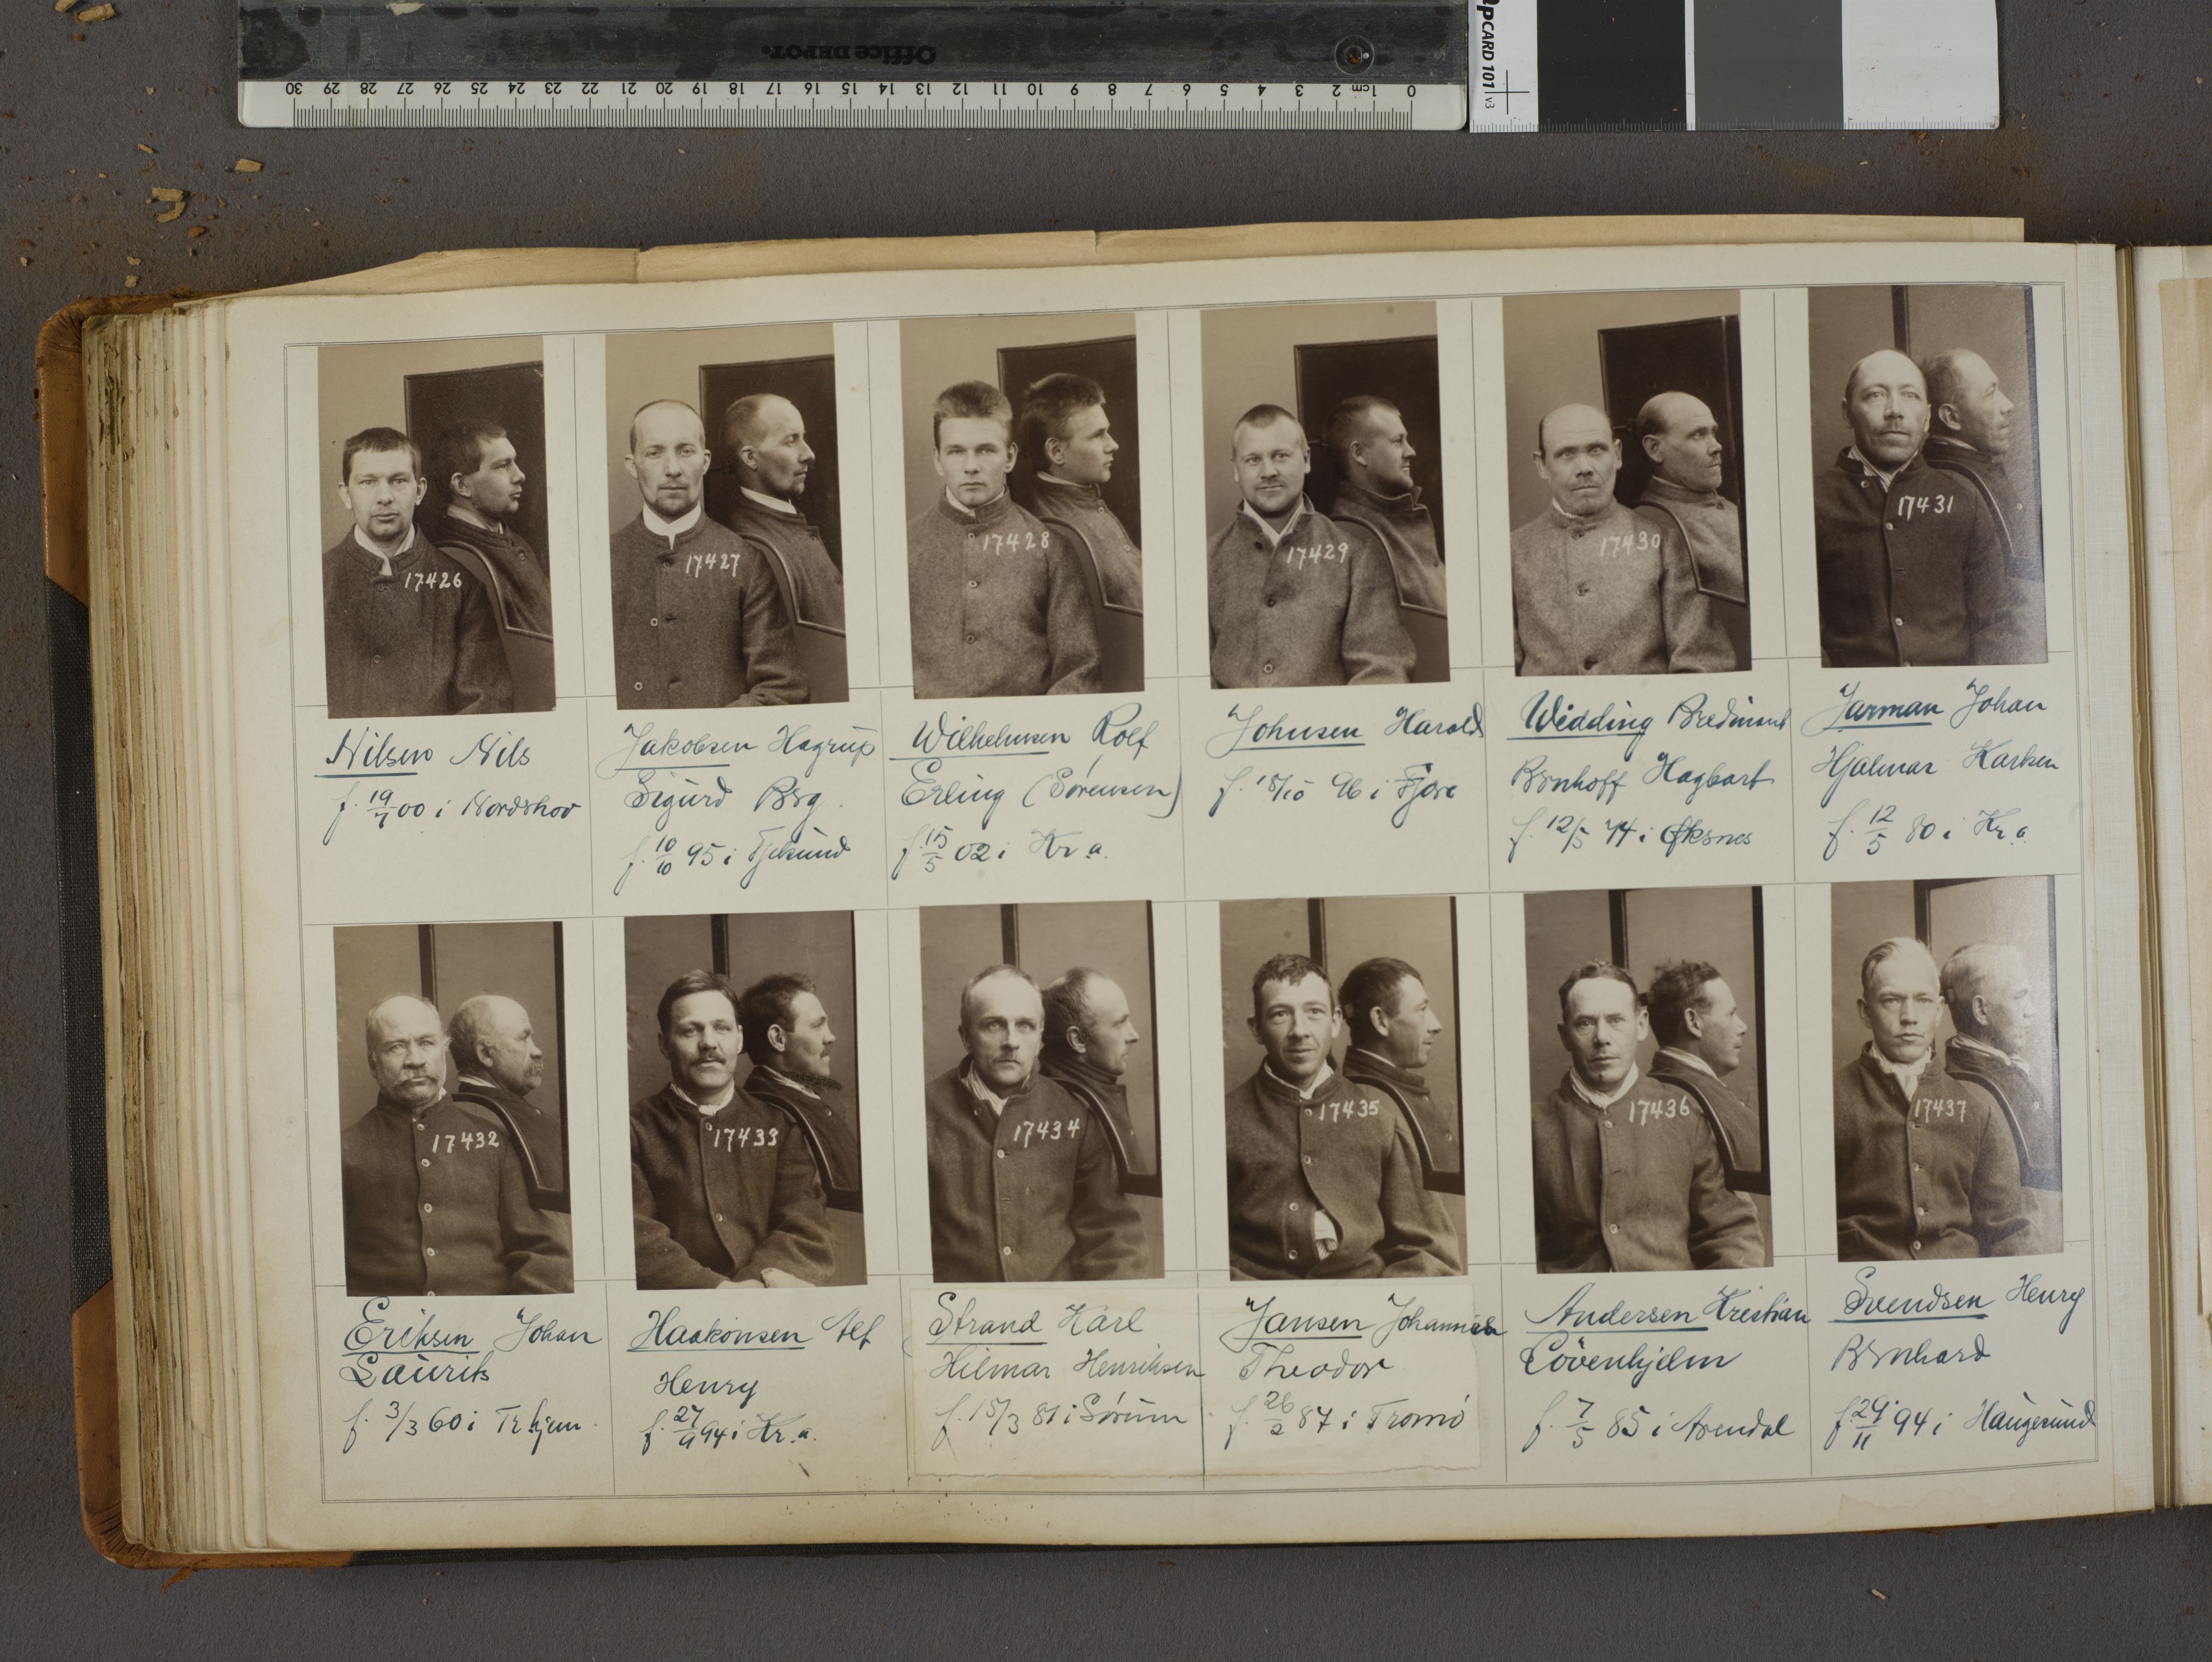 Office DEPOT
0 1cm 2 3 4 5 6 7 8 9 10 11 12 13 14 15 16 17 18 19 20 21 22 23 24 25 26 27 28 29 30
CARD 101 v3
17426
17427
17428
17429
17430
17431
Nilsen Nils
f. 19/7 00 i Nordshov
Jakobsen Hagrup
Sigurd Brg.
f. 10/10 95 i
Wilhelmsen Rolf
Erling (Sørensen)
f. 15/5 02 i Kr.a.
Johnsen Harald
f. 96 i Fjære
Wedding
Hagbart
f. 12/5 74 i Øksnes
Jarman Johan
Hjalmar
f. 12/5 80 i Kr.a.
17432
17433
17434
17435
17436
17437
Eriksen Johan
Laurits
f. 3/3 60 i Tr.hjem.
Haakonsen Alf
Henry
f. 27/9 94 i Kr.a.
Strand Karl
Hilmar Henriksen
f. 15/3 81 i Sørum
Jansen Johannes
Theodor
f. 26/2 87 i Tromö
Andersen Kristian
Lövenhjelm
f. 7/5 85 i Arendal
Svendsen Henry
Brnhard
f. 29/11 94 i Haugesund